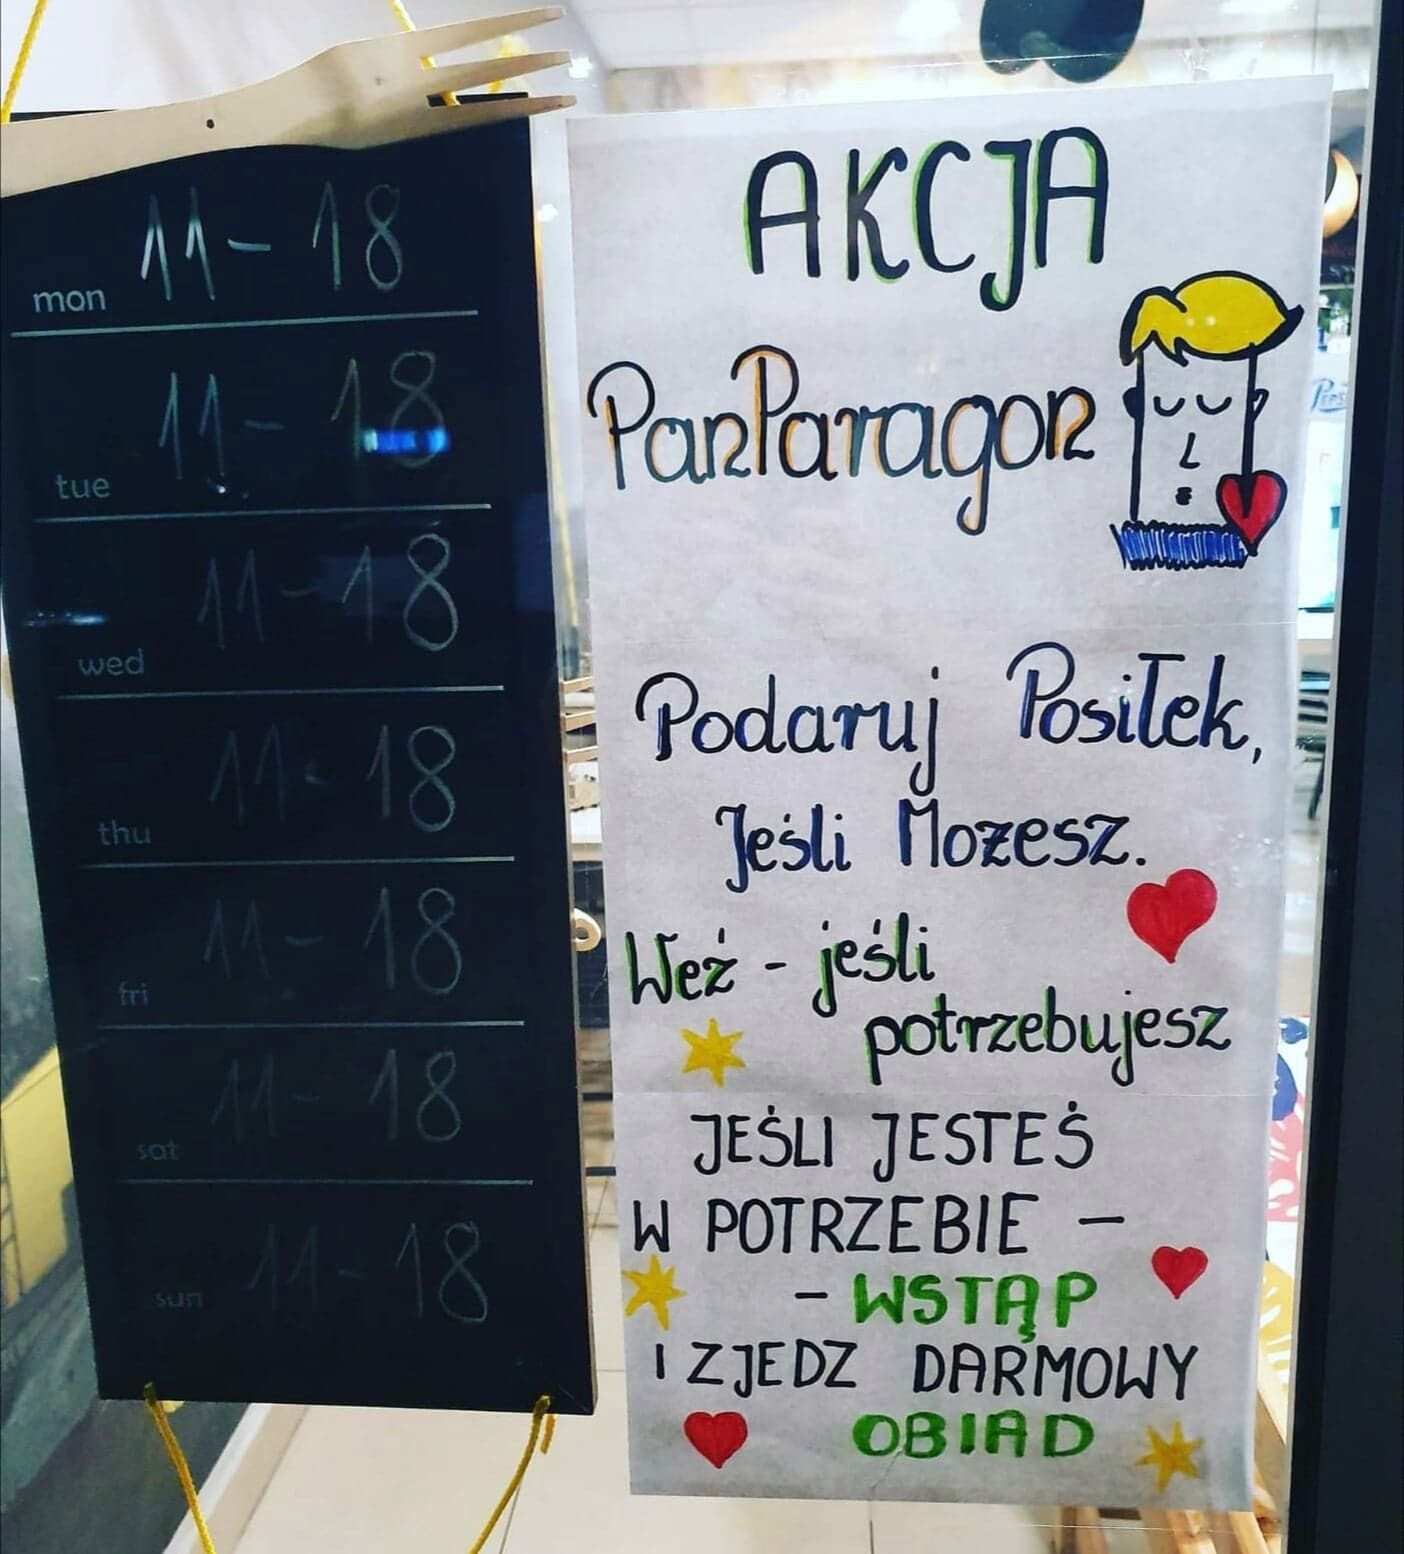 11-18
mon
11-18
tue
11-18
wed
11-18
thu
11-18
fri
11-18
sat
11-18
sun
AKCJA
PanParagon
Podaruj Posiłek,
Jeśli Możesz.
Weź - jeśli
potrzebujesz
JEŚLI JESTEŚ
W POTRZEBIE -
- WSTĄP
I ZJEDZ DARMOWY
OBIAD